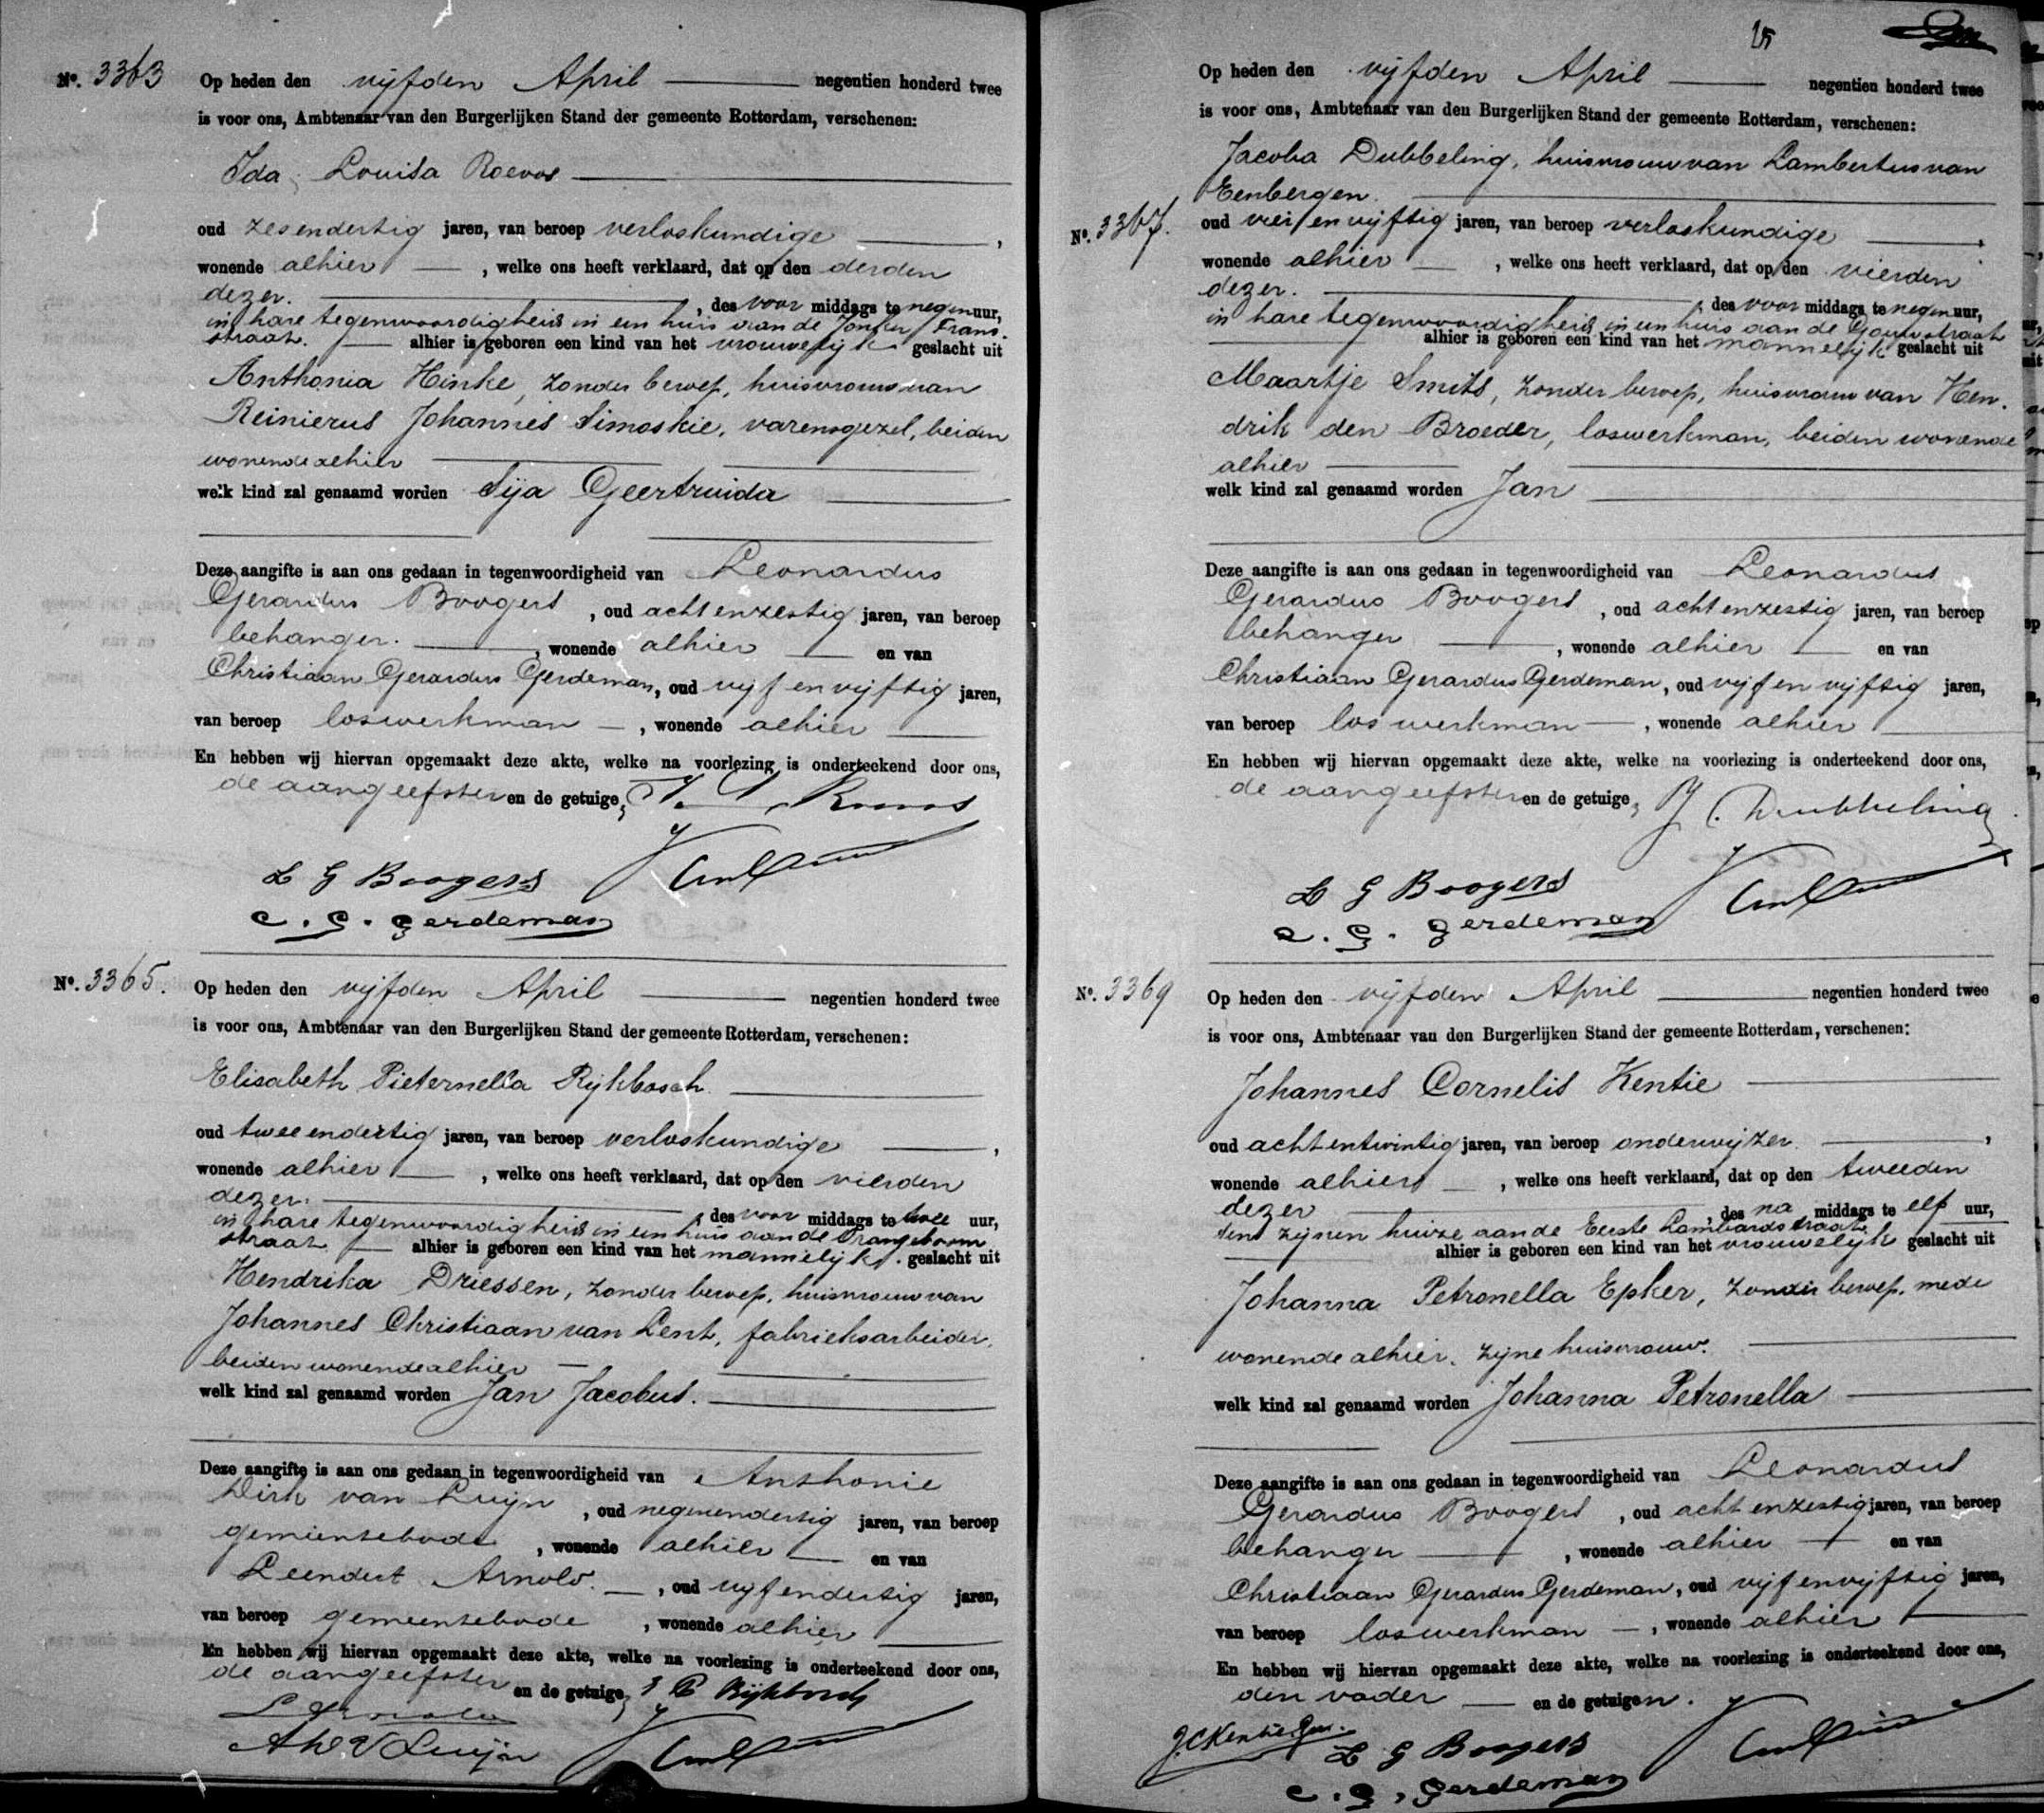 No. 3363
Op heden den vijfden April negentien honderd twee
is voor ons, Ambtenaar van den Burgerlijken Stand der gemeente Rotterdam, verschenen:
Ida Louisa Roevos
oud zesendertig jaren, van beroep verloskundige,
wonende alhier, welke ons heeft verklaard, dat op den derden
dezer. , des voor middags te negen uur,
in hare tegenwoordigheid in een huis aan de Jonker Frans-
straat. alhier is geboren een kind van het vrouwelijk geslacht uit
Anthonia Hinke, zonder beroep, huisvrouw van
Reinierus Johannes Simoskie, varensgezel, beiden
wonende alhier
welk kind zal genaamd worden Sija Geertruida
Deze aangifte is aan ons gedaan in tegenwoordigheid van Leonardus
Gerardus Boogers, oud achtenzestig jaren, van beroep
behanger. , wonende alhier en van
Christiaan Gerardus Gerdeman, oud vijfenvijftig jaren,
van beroep loswerkman, wonende alhier
En hebben wij hiervan opgemaakt deze akte, welke na voorlezing is onderteekend door ons,
de aangeefster en de getuigen
L G Boogers
C. G. Gerdeman
No. 3365.
Op heden den vijfden April negentien honderd twee
is voor ons, Ambtenaar van den Burgerlijken Stand der gemeente Rotterdam, verschenen:
Elisabeth Pieternella Rijkbosch.
oud twee endertig jaren, van beroep verloskundige,
wonende alhier, welke ons heeft verklaard, dat op den vierden
dezer. , des voor middags te twee uur,
in hare tegenwoordigheid in een huis aan de Oranjeboom
straat alhier is geboren een kind van het mannelijk geslacht uit
Hendrika Driessen, zonder beroep, huisvrouw van
Johannes Christiaan van Lent, fabrieksarbeider,
beiden wonende alhier
welk kind zal genaamd worden Jan Jacobus.
Deze aangifte is aan ons gedaan in tegenwoordigheid van Anthonie
Dirk van Luijn, oud negenendertig jaren, van beroep
gemeentebode, wonende alhier en van
Leendert Arnold. , oud vijfendertig jaren,
van beroep gemeentebode, wonende alhier
En hebben wij hiervan opgemaakt deze akte, welke na voorlezing is onderteekend door ons,
de aangeefster en de getuigen E P Rijkbosch
L Arnold
A D V Luijn
15
No. 3367.
Op heden den vijfden April negentien honderd twee
is voor ons, Ambtenaar van den Burgerlijken Stand der gemeente Rotterdam, verschenen:
Jacoba Dubbeling, huisvrouw van Lambertus van
Eenbergen.
oud vier en vijftig jaren, van beroep verloskundige,
wonende alhier, welke ons heeft verklaard, dat op den vierden
dezer. , des voor middags te negen uur,
in hare tegenwoordigheid in een huis aan de Gouvstraat
alhier is geboren een kind van het mannelijk geslacht uit
Maartje Smits, zonder beroep, huisvrouw van Hen-
drik den Broeder, loswerkman, beiden wonende
alhier
welk kind zal genaamd worden Jan
Deze aangifte is aan ons gedaan in tegenwoordigheid van Leonardus
Gerardus Boogers, oud achtenzestig jaren, van beroep
behanger, wonende alhier en van
Christiaan Gerardus Gerdeman, oud vijfenvijftig jaren,
van beroep loswerkman, wonende alhier
En hebben wij hiervan opgemaakt deze akte, welke na voorlezing is onderteekend door ons,
de aangeefster en de getuigen J. Dubbeling
L G Boogers
C. G. Gerdeman
No. 3369
Op heden den vijfden April negentien honderd twee
is voor ons, Ambtenaar van den Burgerlijken Stand der gemeente Rotterdam, verschenen:
Johannes Cornelis Kentie
oud achtentwintig jaren, van beroep onderwijzer,
wonende alhier, welke ons heeft verklaard, dat op den tweeden
dezer, des na middags te elf uur,
tens zijnen huize aan de Eerste Lombardstraat
alhier is geboren een kind van het vrouwelijk geslacht uit
Johanna Petronella Epker, zonder beroep, mede
wonende alhier, zijne huisvrouw.
welk kind zal genaamd worden Johanna Petronella
Deze aangifte is aan ons gedaan in tegenwoordigheid van Leonardus
Gerardus Boogers, oud achtenzestig jaren, van beroep
behanger, wonende alhier en van
Christiaan Gerardus Gerdeman, oud vijfenvijftig jaren,
van beroep loswerkman, wonende alhier
En hebben wij hiervan opgemaakt deze akte, welke na voorlezing is onderteekend door ons,
den vader en de getuigen.
J.C. Kentie Jr.
L G Boogers
C. G. Gerdeman